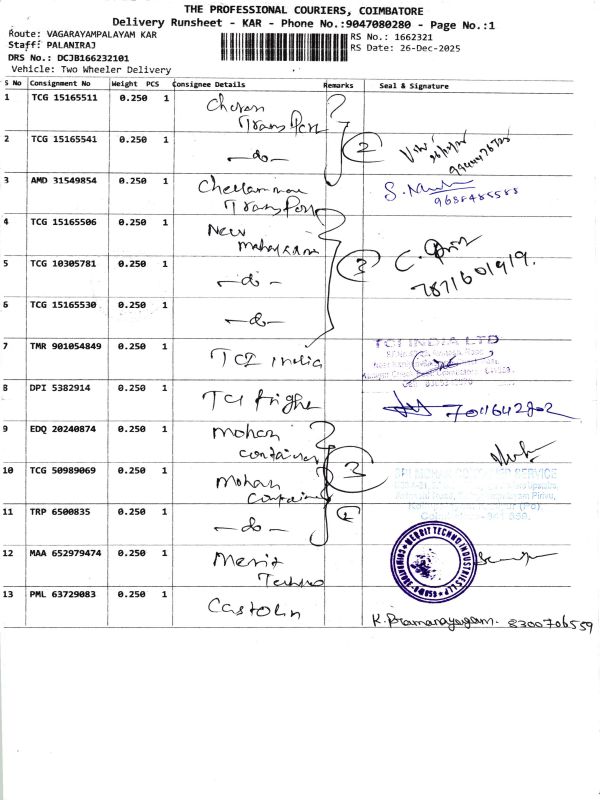 THE PROFESSIONAL COURIERS, COIMBATORE
Delivery Runsheet - KAR - Phone No.:9047080280 - Page No.:1
Route: VAGARAYAMPALAYAM KAR
RS No.: 1662321
Staff: PALANIRAJ
RS Date: 26-Dec-2025
DRS No.: DCJB166232101
Vehicle: Two Wheeler Delivery
S No Consignment No Weight PCS Consignee Details Remarks Seal & Signature
1 TCG 15165511 0.250 1 Cheran Transport
2 TCG 15165541 0.250 1 -do- 2
3 AMD 31549854 0.250 1 Chellamman Transport S. 9688485588
4 TCG 15165506 0.250 1 New
5 TCG 10305781 0.250 1 -do- 3 C. 7871601919.
6 TCG 15165530 0.250 1 -do-
7 TMR 901054849 0.250 1 TCI India TCI INDIA LTD
8 DPI 5382914 0.250 1 TCI 7041642802
9 EDQ 20240874 0.250 1 Mohan Container
10 TCG 50989069 0.250 1 Mohan Container 3 CONTAINER SERVICE
11 TRP 6500835 0.250 1 -do-
12 MAA 652979474 0.250 1 Merit Techno MERRIT TECHNO INDUSTRIES LLP
13 PML 63729083 0.250 1 Castolin K. 8300706559